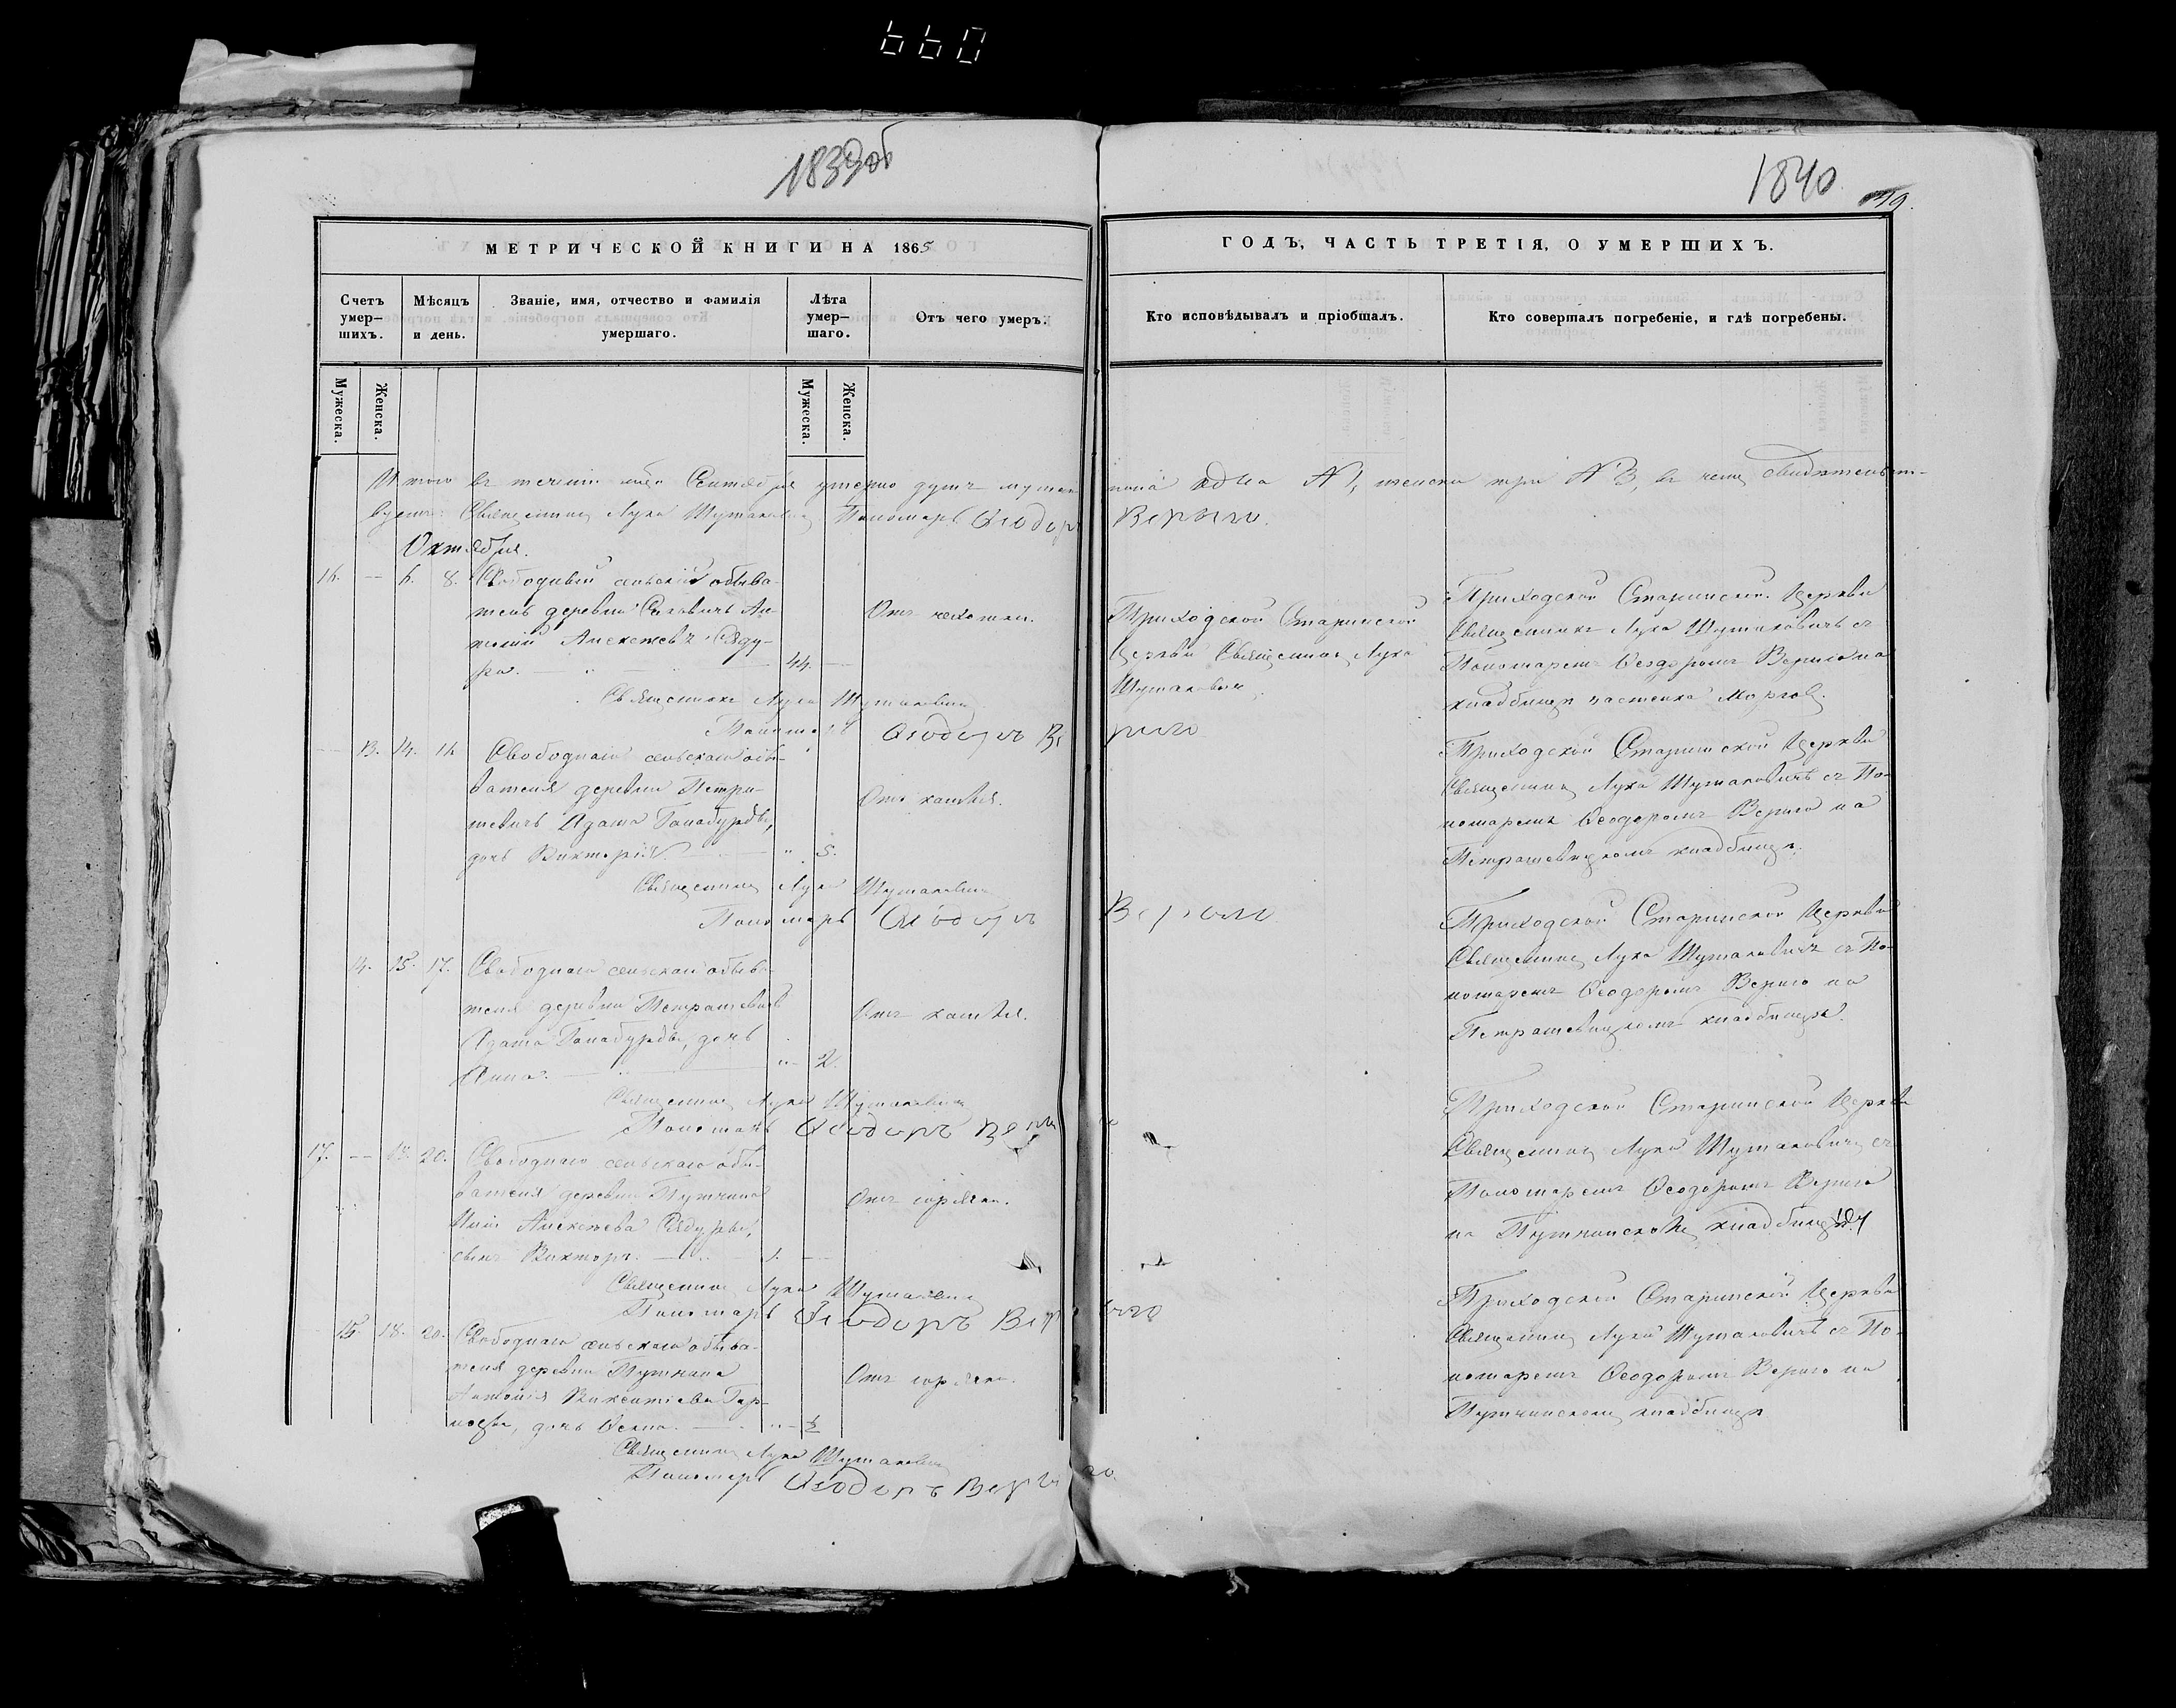 660
1839об
1840
МЕТРИЧЕСКОЙ КНИГИ НА 1865
ГОДЪ, ЧАСТЬ ТРЕТІЯ, О УМЕРШИХЪ.
Счетъ умер-шихъ.
Мѣсяцъ и день.
Званіе, имя, отчество и фамилія умершаго.
Лѣта умер-шаго.
Отъ чего умеръ.
Кто исповѣдывалъ и пріобщалъ.
Кто совершалъ погребеніе, и гдѣ погребены.
Мужеска.
Женска.
Мужеска.
Женска.
Итого въ теченіи Сентября умерло душъ
одна № 1, женска три № 3, въ чемъ свидѣтельст-
Священникъ Лука Шумановичъ Пономарь Ѳеодоръ Верыго.
Октября.
16. — 6. 8. Свободный сельскій обыва-
тель деревни
Алексѣевъ Сяду-
ра. 44. —
Приходской Старинской
Церкви Священникъ Лука
Шумановичъ
Приходской Старинской Церкви
Священникъ Лука Шумановичъ съ
Пономаремъ Ѳеодоромъ Верыго на
кладбищѣ
Священникъ Лука Шумановичъ
Пономарь Ѳеодоръ Верыго
13. 14. 16. Свободнаго сельскаго обы-
вателя деревни Петра-
шевичъ Адама
дочь Викторія. 5.
Отъ кашля.
Приходской Старинской Церкви
Священникъ Лука Шумановичъ съ По-
номаремъ Ѳеодоромъ Верыго на
Петрашевицкомъ кладбищѣ.
Священникъ Лука Шумановичъ
Пономарь Ѳеодоръ Верыго
14. 15. 17. Свободнаго сельскаго обыва-
теля деревни Петрашевичъ
Адама дочь
Анна. 2.
Отъ кашля.
Приходской Старинской Церкви
Священникъ Лука Шумановичъ съ По-
номаремъ Ѳеодоромъ Верыго на
Петрашевицкомъ кладбищѣ.
Священникъ Лука Шумановичъ
Пономарь Ѳеодоръ Верыго
17. — 20. Свободнаго сельскаго обы-
вателя деревни
Алексѣева Сядуры,
сынъ Викторъ. 1. —
Отъ горячки.
Приходской Старинской Церкви
Священникъ Лука Шумановичъ съ
Пономаремъ Ѳеодоромъ Верыго
на кладбищѣ
Священникъ Лука Шумановичъ
Пономарь Ѳеодоръ Верыго
15. 18. 20. Свободнаго сельскаго обыва-
теля деревни
Антонія Викентіева
дочь ½
Отъ горячки.
Приходской Старинской Церкви
Священникъ Лука Шумановичъ съ По-
номаремъ Ѳеодоромъ Верыго на
кладбищѣ
Священникъ Лука Шумановичъ
Пономарь Ѳеодоръ Верыго